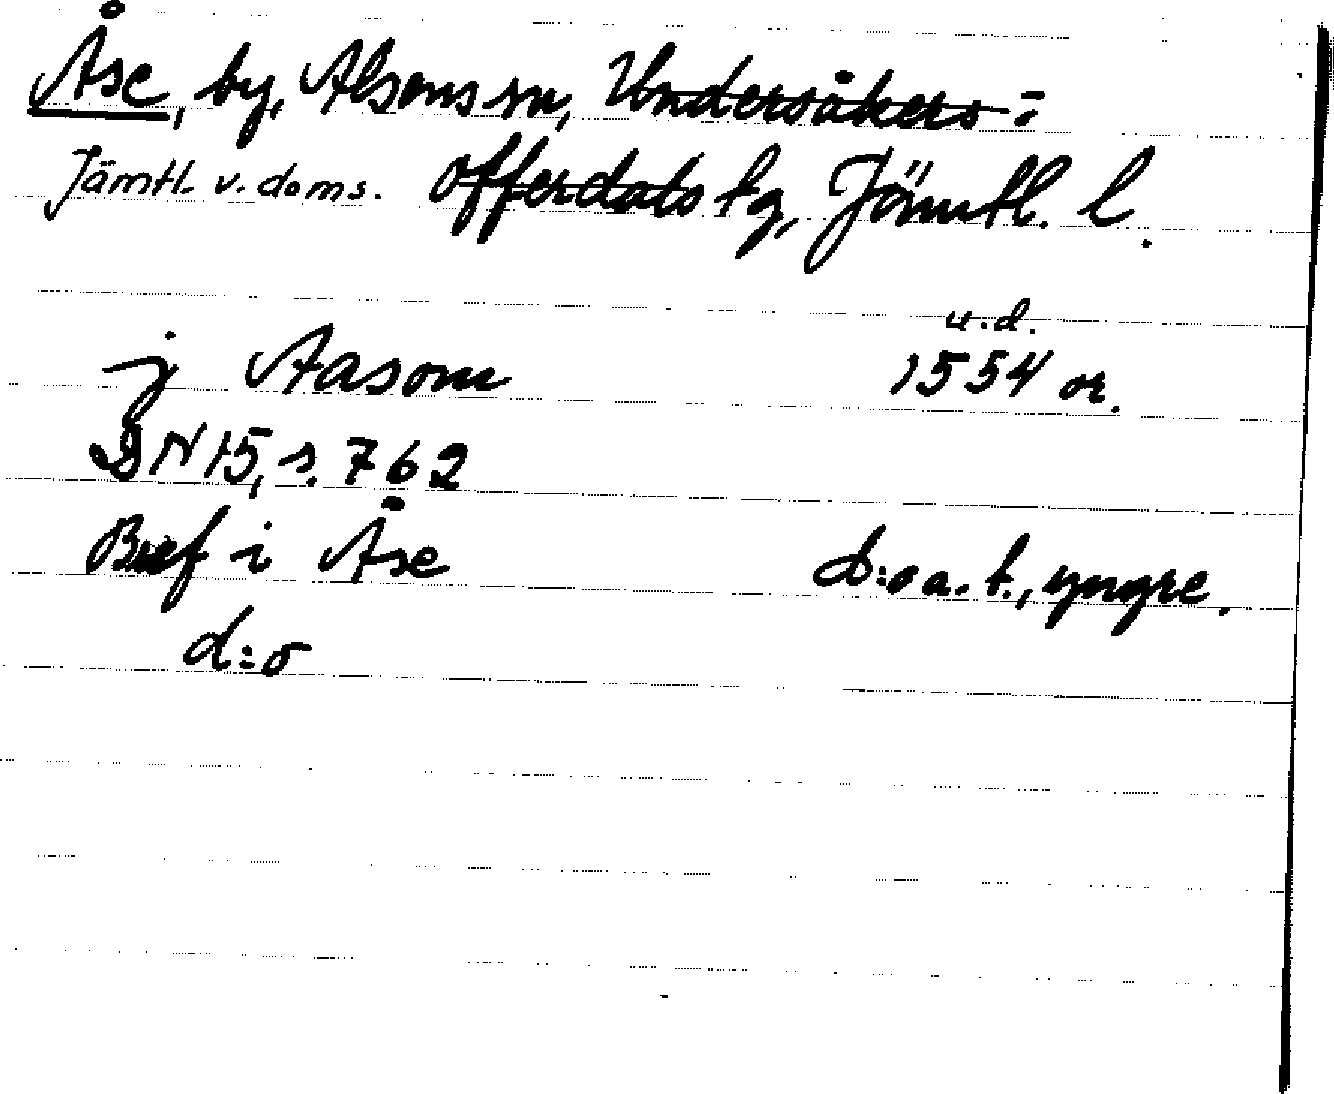 Åse, by, Alsens sn, Undersåkers=
Jämtl. v. doms. Offerdals tg, Jämtl. l.
u.d.
j Aasom 1554 or.
DN 15, s. 762
Bref i Åse d:o a. t., yngre.
d:o